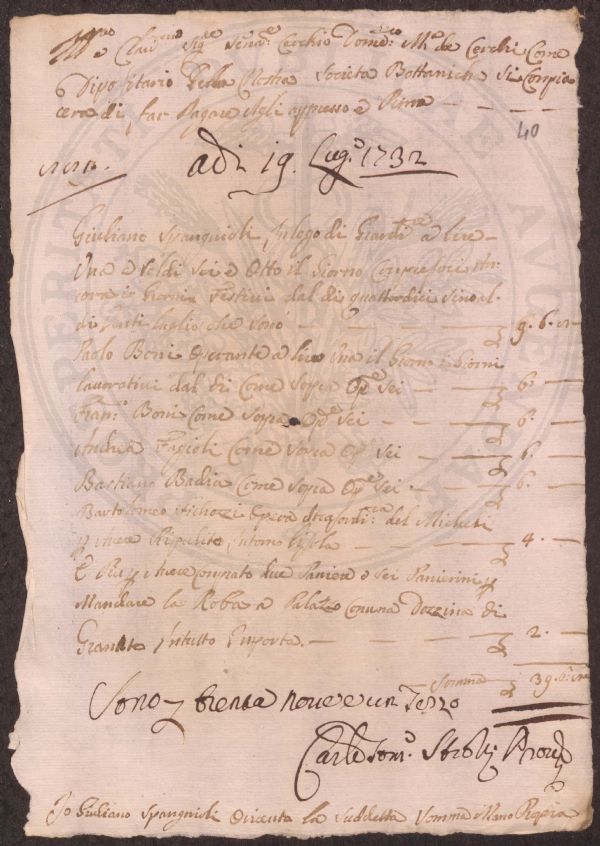 Ill.mo e Clar.mo Sig.e Sena.e Cerchio Dom.co M.a de Cerchi Come
Dipositario Della Nostra Società Bottanicha Si Compia
cerà di far Pagare Agli appresso e Prima
40
adi 19. Lug.o 1732
Giuliano Spangnioli In logo di Giard.re a lire
Una e Soldi Sei e Otto il Giorno Compresoci An
cora i Giorni Festivi dal di quattordici Sino al
di Venti luglio che Sono 9. 6.
Paolo Boni Operante a lire Una il Giorno i Giorni
lavorativi dal di Come Sopra Op.e Sei 6.
Fran.o Boni Come Sopra Op.e Sei 6.
Andrea Fagioli Come Sopra Op.e Sei 6.
Bastiano Badia Come Sopra Op.e Sei 6.
Bartolomeo Opera del Micheli
avere Ripulito Intorno l'Isola 4.
E Più avere Comprato due Paniere e Sei Panierini p
Mandare la Roba a Palazzo Con una Dozzina di
Granate In tutto Importa 2.
Somma 39. 6.
Sono trenta nove e un Terzo
Carl Proved.
Io Giuliano Spangnioli la Suddetta Somma Mano Propria